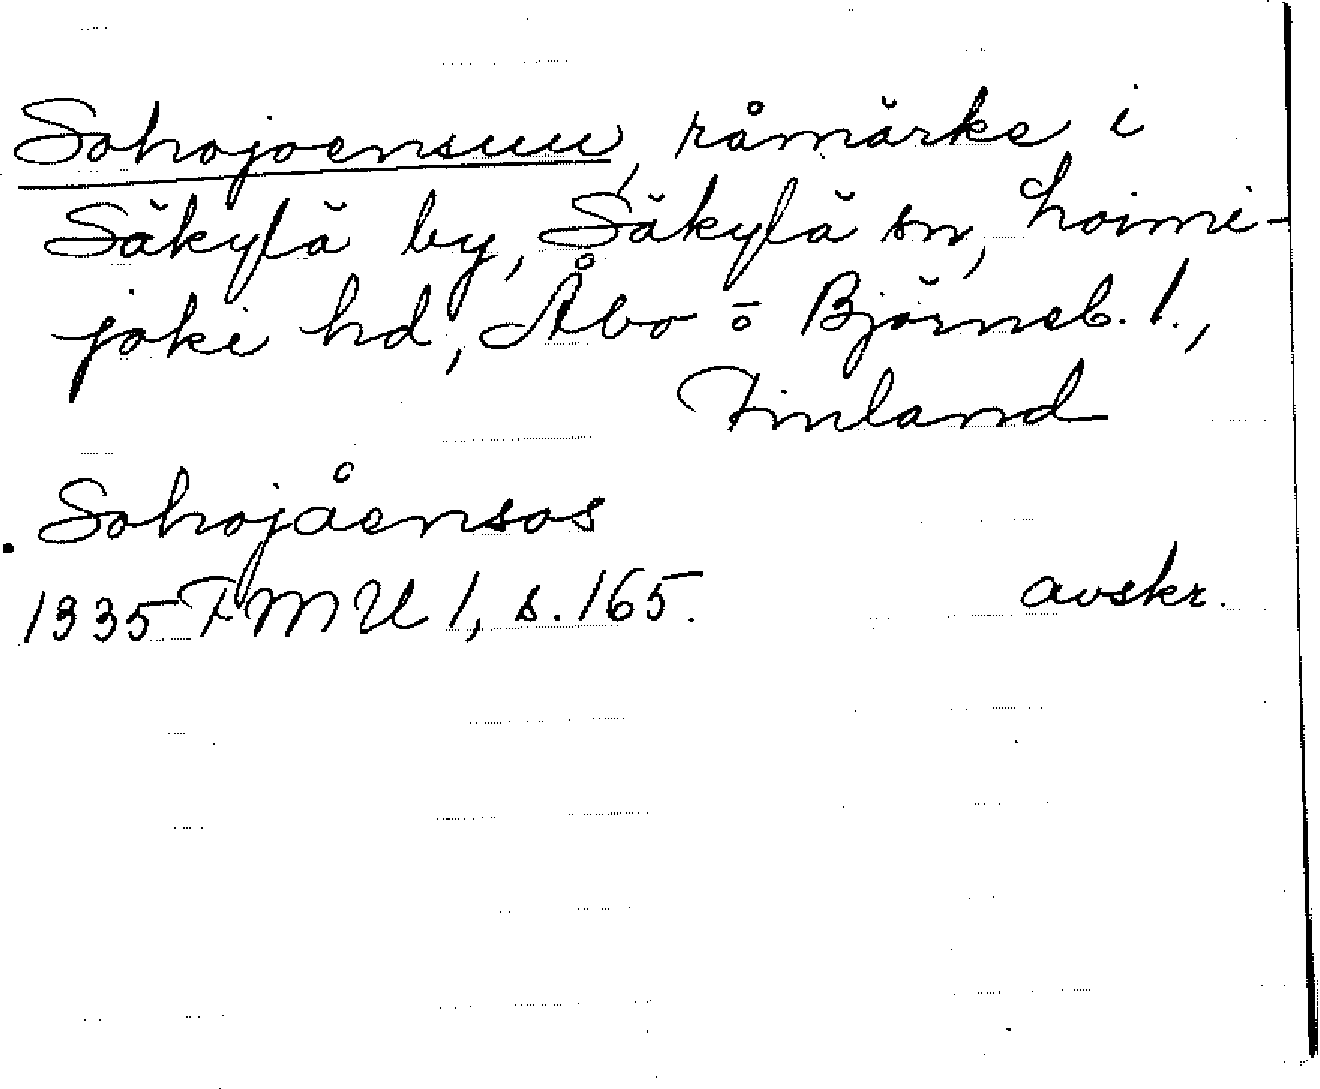 Sohojoensuu, råmärke i
Säkylä by, Säkylä sn, Loimi-
joki hd, Åbo o Björneb. l.,
Finland
Sohojåensos
1335 FMU 1, s. 165. avskr.